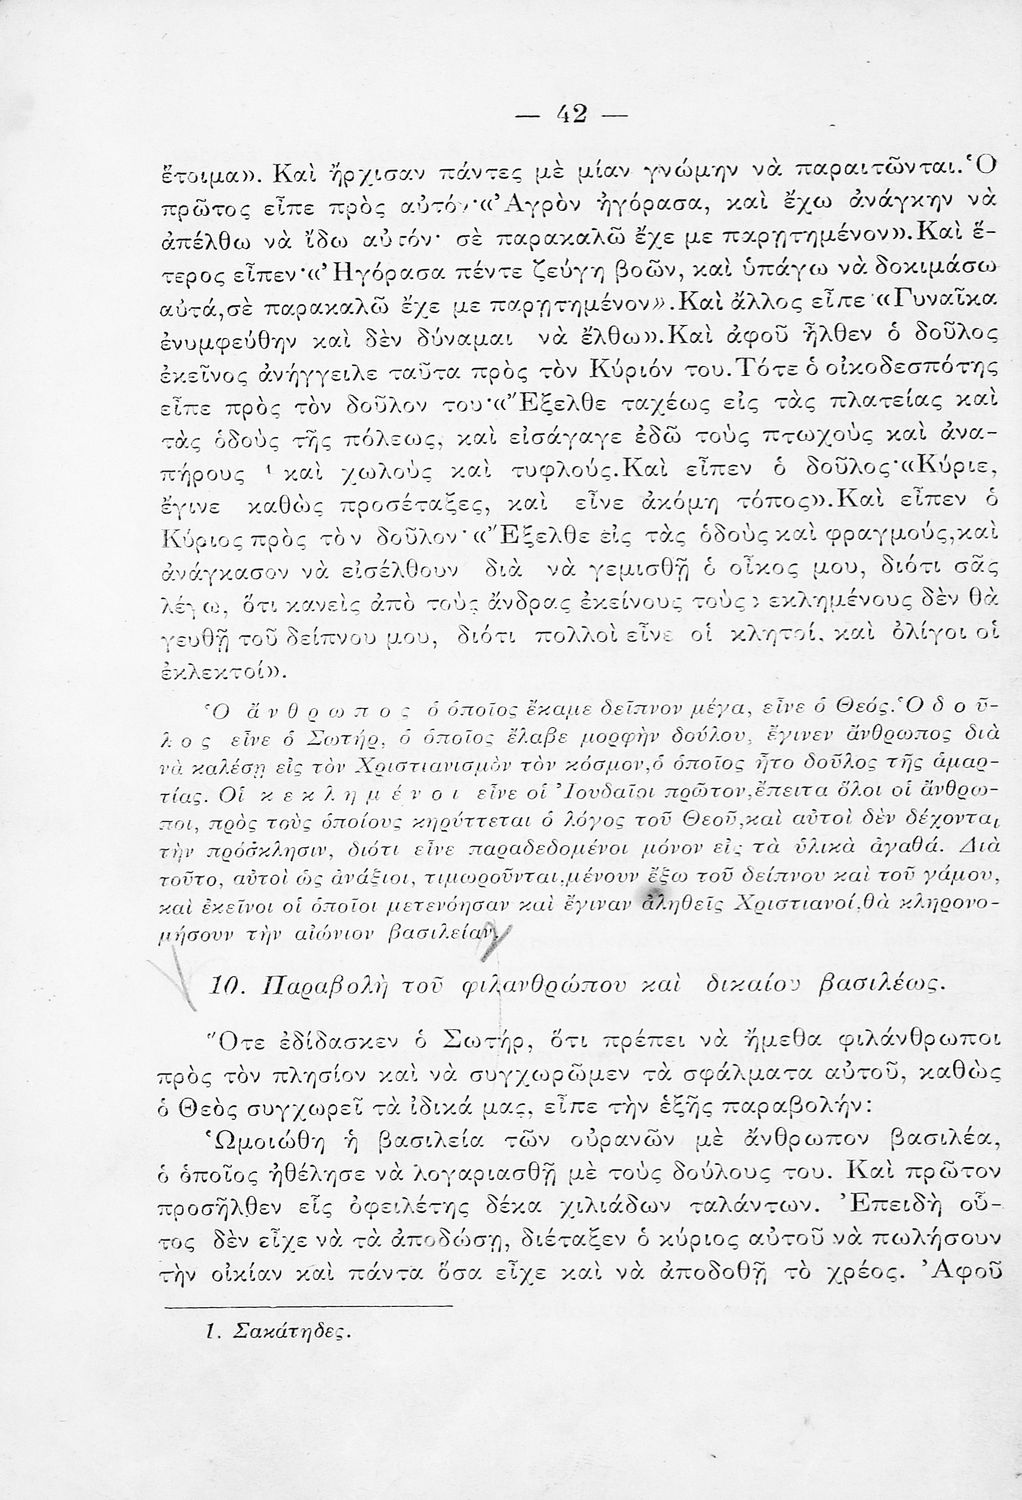 — 42 —
ἕτοιμα». Καὶ ἤρχισαν πάντες μὲ μίαν γνώμην νὰ παραιτῶνται. Ὁ
πρῶτος εἶπε πρὸς αὐτόν·«Ἀγρὸν ἠγόρασα, καὶ ἔχω ἀνάγκην νὰ
ἀπέλθω νὰ ἴδω αὐτόν· σὲ παρακαλῶ ἔχε με παρῃτημένον». Καὶ ἕ-
τερος εἶπεν·«Ἠγόρασα πέντε ζεύγη βοῶν, καὶ ὑπάγω νὰ δοκιμάσω
αὐτά,σὲ παρακαλῶ ἔχε με παρῃτημένον».Καὶ ἄλλος εἶπε·«Γυναῖκα
ἐνυμφεύθην καὶ δὲν δύναμαι νὰ ἔλθω».Καὶ ἀφοῦ ἦλθεν ὁ δοῦλος
ἐκεῖνος ἀνήγγειλε ταῦτα πρὸς τὸν Κύριόν του.Τότε ὁ οἰκοδεσπότης
εἶπε πρὸς τὸν δοῦλον του·«Ἔξελθε ταχέως εἰς τὰς πλατείας καὶ
τὰς ὁδοὺς τῆς πόλεως, καὶ εἰσάγαγε ἐδῶ τοὺς πτωχοὺς καὶ ἀνα-
πήρους ¹ καὶ χωλοὺς καὶ τυφλούς.Καὶ εἶπεν ὁ δοῦλος·«Κύριε,
ἔγινε καθὼς προσέταξες, καὶ εἶνε ἀκόμη τόπος».Καὶ εἶπεν ὁ
Κύριος πρὸς τὸν δοῦλον·«Ἔξελθε εἰς τὰς ὁδοὺς καὶ φραγμούς,καὶ
ἀνάγκασον νὰ εἰσέλθουν διὰ νὰ γεμισθῇ ὁ οἶκος μου, διότι σᾶς
λέγω, ὅτι κανεὶς ἀπὸ τοὺς ἄνδρας ἐκείνους τοὺς κεκλημένους δὲν θὰ
γευθῇ τοῦ δείπνου μου, διότι πολλοὶ εἶνε οἱ κλητοί, καὶ ὀλίγοι οἱ
ἐκλεκτοί».
Ὁ ἄνθρωπος ὁ ὁποῖος ἔκαμε δεῖπνον μέγα, εἶνε ὁ Θεός.Ὁ δοῦ-
λος εἶνε ὁ Σωτήρ, ὁ ὁποῖος ἔλαβε μορφὴν δούλου, ἔγινεν ἄνθρωπος διὰ
νὰ καλέσῃ εἰς τὸν Χριστιανισμὸν τὸν κόσμον,ὁ ὁποῖος ἦτο δοῦλος τῆς ἁμαρ-
τίας. Οἱ κεκλημένοι εἶνε οἱ Ἰουδαῖοι πρῶτον,ἔπειτα ὅλοι οἱ ἄνθρω-
ποι, πρὸς τοὺς ὁποίους κηρύττεται ὁ λόγος τοῦ Θεοῦ,καὶ αὐτοὶ δὲν δέχονται
τὴν πρόσκλησιν, διότι εἶνε παραδεδομένοι μόνον εἰς τὰ ὑλικὰ ἀγαθά. Διὰ
τοῦτο, αὐτοὶ ὡς ἀνάξιοι, τιμωροῦνται,μένουν ἔξω τοῦ δείπνου καὶ τοῦ γάμου,
καὶ ἐκεῖνοι οἱ ὁποῖοι μετενόησαν καὶ ἔγιναν ἀληθεῖς Χριστιανοί,θὰ κληρονο-
μήσουν τὴν αἰώνιον βασιλείαν.
10. Παραβολὴ τοῦ φιλανθρώπου καὶ δικαίου βασιλέως.
Ὅτε ἐδίδασκεν ὁ Σωτήρ, ὅτι πρέπει νὰ ἤμεθα φιλάνθρωποι
πρὸς τὸν πλησίον καὶ νὰ συγχωρῶμεν τὰ σφάλματα αὐτοῦ, καθὼς
ὁ Θεὸς συγχωρεῖ τὰ ἰδικά μας, εἶπε τὴν ἑξῆς παραβολήν:
Ὡμοιώθη ἡ βασιλεία τῶν οὐρανῶν μὲ ἄνθρωπον βασιλέα,
ὁ ὁποῖος ἠθέλησε νὰ λογαριασθῇ μὲ τοὺς δούλους του. Καὶ πρῶτον
προσῆλθεν εἷς ὀφειλέτης δέκα χιλιάδων ταλάντων. Ἐπειδὴ οὗ-
τος δὲν εἶχε νὰ τὰ ἀποδώσῃ, διέταξεν ὁ κύριος αὐτοῦ νὰ πωλήσουν
τὴν οἰκίαν καὶ πάντα ὅσα εἶχε καὶ νὰ ἀποδοθῇ τὸ χρέος. Ἀφοῦ
1. Σακάτηδες.